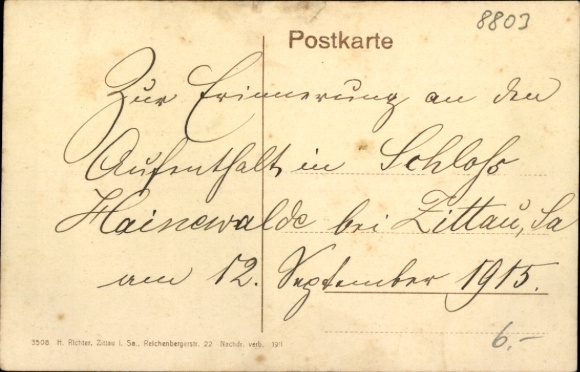 8803
Postkarte
Zur Erinnerung an den
Aufenthalt in Schloß
Hainewalde bei Zittau, Sa
am 12. September 1915.
6.-
3508. H. Richter, Zittau i. Sa., Reichenbergerstr. 22 Nachdr. verb. 1911